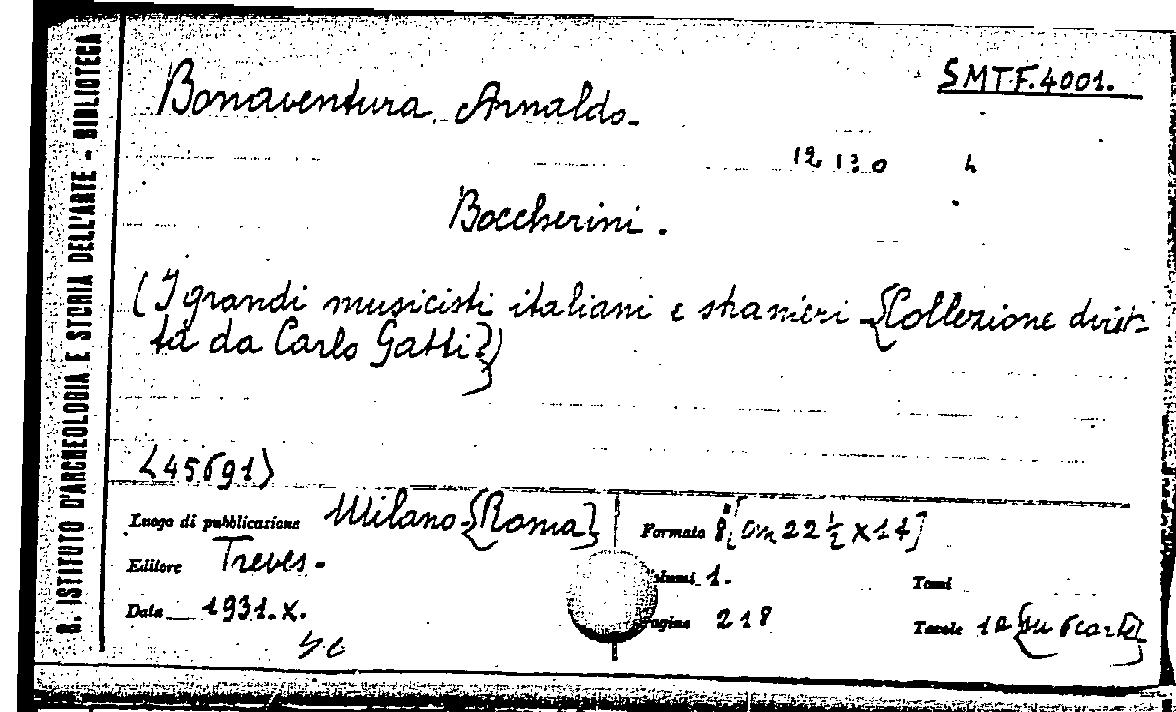 R. ISTITUTO D'ARCHEOLOGIA E STORIA DELL'ARTE - BIBLIOTECA
SMTF.4001.
Bonaventura, Arnaldo.
12 13.0 h
Boccherini.
(I grandi musicisti italiani e stranieri {Collezione diret-
ta da Carlo Gatti})
<45691>
Luogo di pubblicazione Milano-{Roma}
Formato 8º [cm 22 ½ x 14]
Editore Treves.
Volumi 1.
Tomi
Data 1931.X.
Pagine 218
Tavole 12 {su 6 carte}